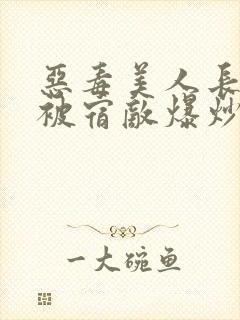 恶毒美人長
被宿敵爆炒
一大碗鱼